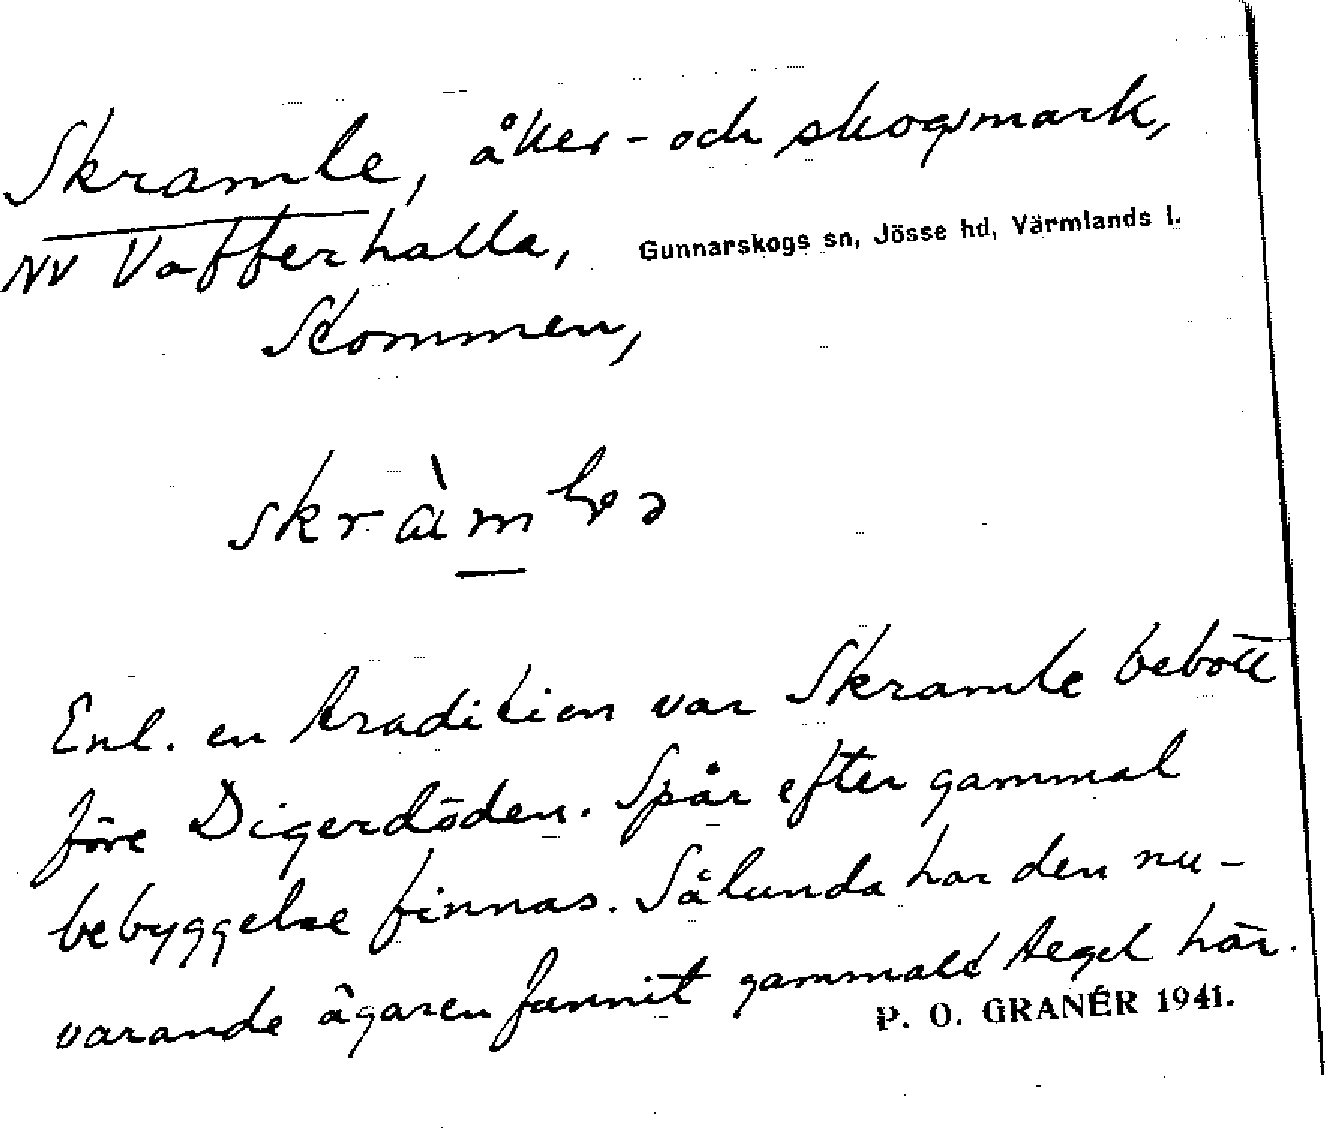 Skramle, åker- och skogsmark,
NV Vafferhalla, Gunnarskogs sn, Jösse hd, Värmlands l.
Skommen,
Enl. en tradition var Skramle bebott
före Digerdöden. Spår efter gammal
bebyggelse finnas. Sålunda har den nu-
varande ägaren funnit gammalt tegel här.
P. O. GRANÉR 1941.